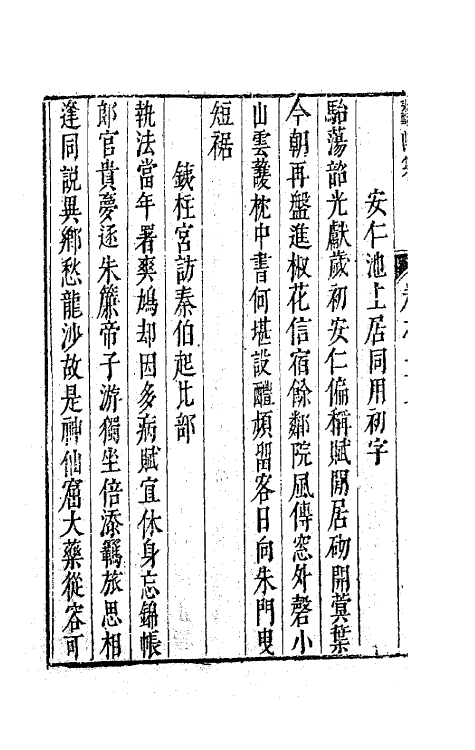 安仁池上居同用初字
駘蕩韶光獻歲初安仁偏稱賦閒居砌開蓂葉
今朝再盤進椒花信宿餘鄰院風傳窓外磬小
山雲護枕中書何堪設醴頻留客日向朱門曳
短裾
鐵柱宮訪秦伯起比部
執法當年署爽鳩却因多病賦宜休身忘錦帳
郎官貴夢逐朱簾帝子游獨坐倍添羈旅思相
逢同説異鄉愁龍沙故是神仙窟大藥從容可